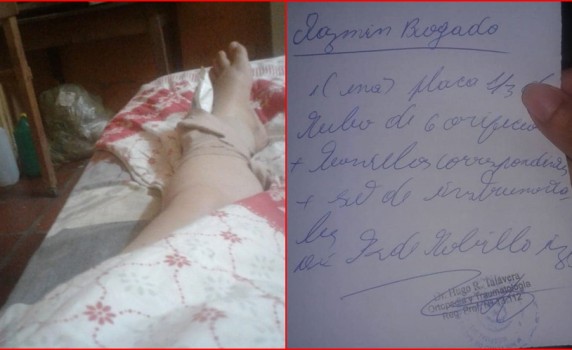 Jazmin Bogado
1 (una) placa 1/3 de
tubo de 6 orificios
+ tornillos correspondientes
+ set de instrumenta
Dx Fx de tobillo izq
Dr. Hugo R. Talavera
Ortopedia y Traumatología
Reg. Prof. N°